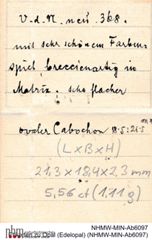 V. d. N. neu 368.
mit sehr schönem Farben-
spiel, breccienartig in
Matrix. sehr flacher
ovaler Cabochon
(L×B×H)
21,3 × 18,4 × 2,3 mm
5,56 ct (1,11 g)
NHMW-MIN-Ab6097
nhm
Opal (Edelopal) (NHMW-MIN-Ab6097)